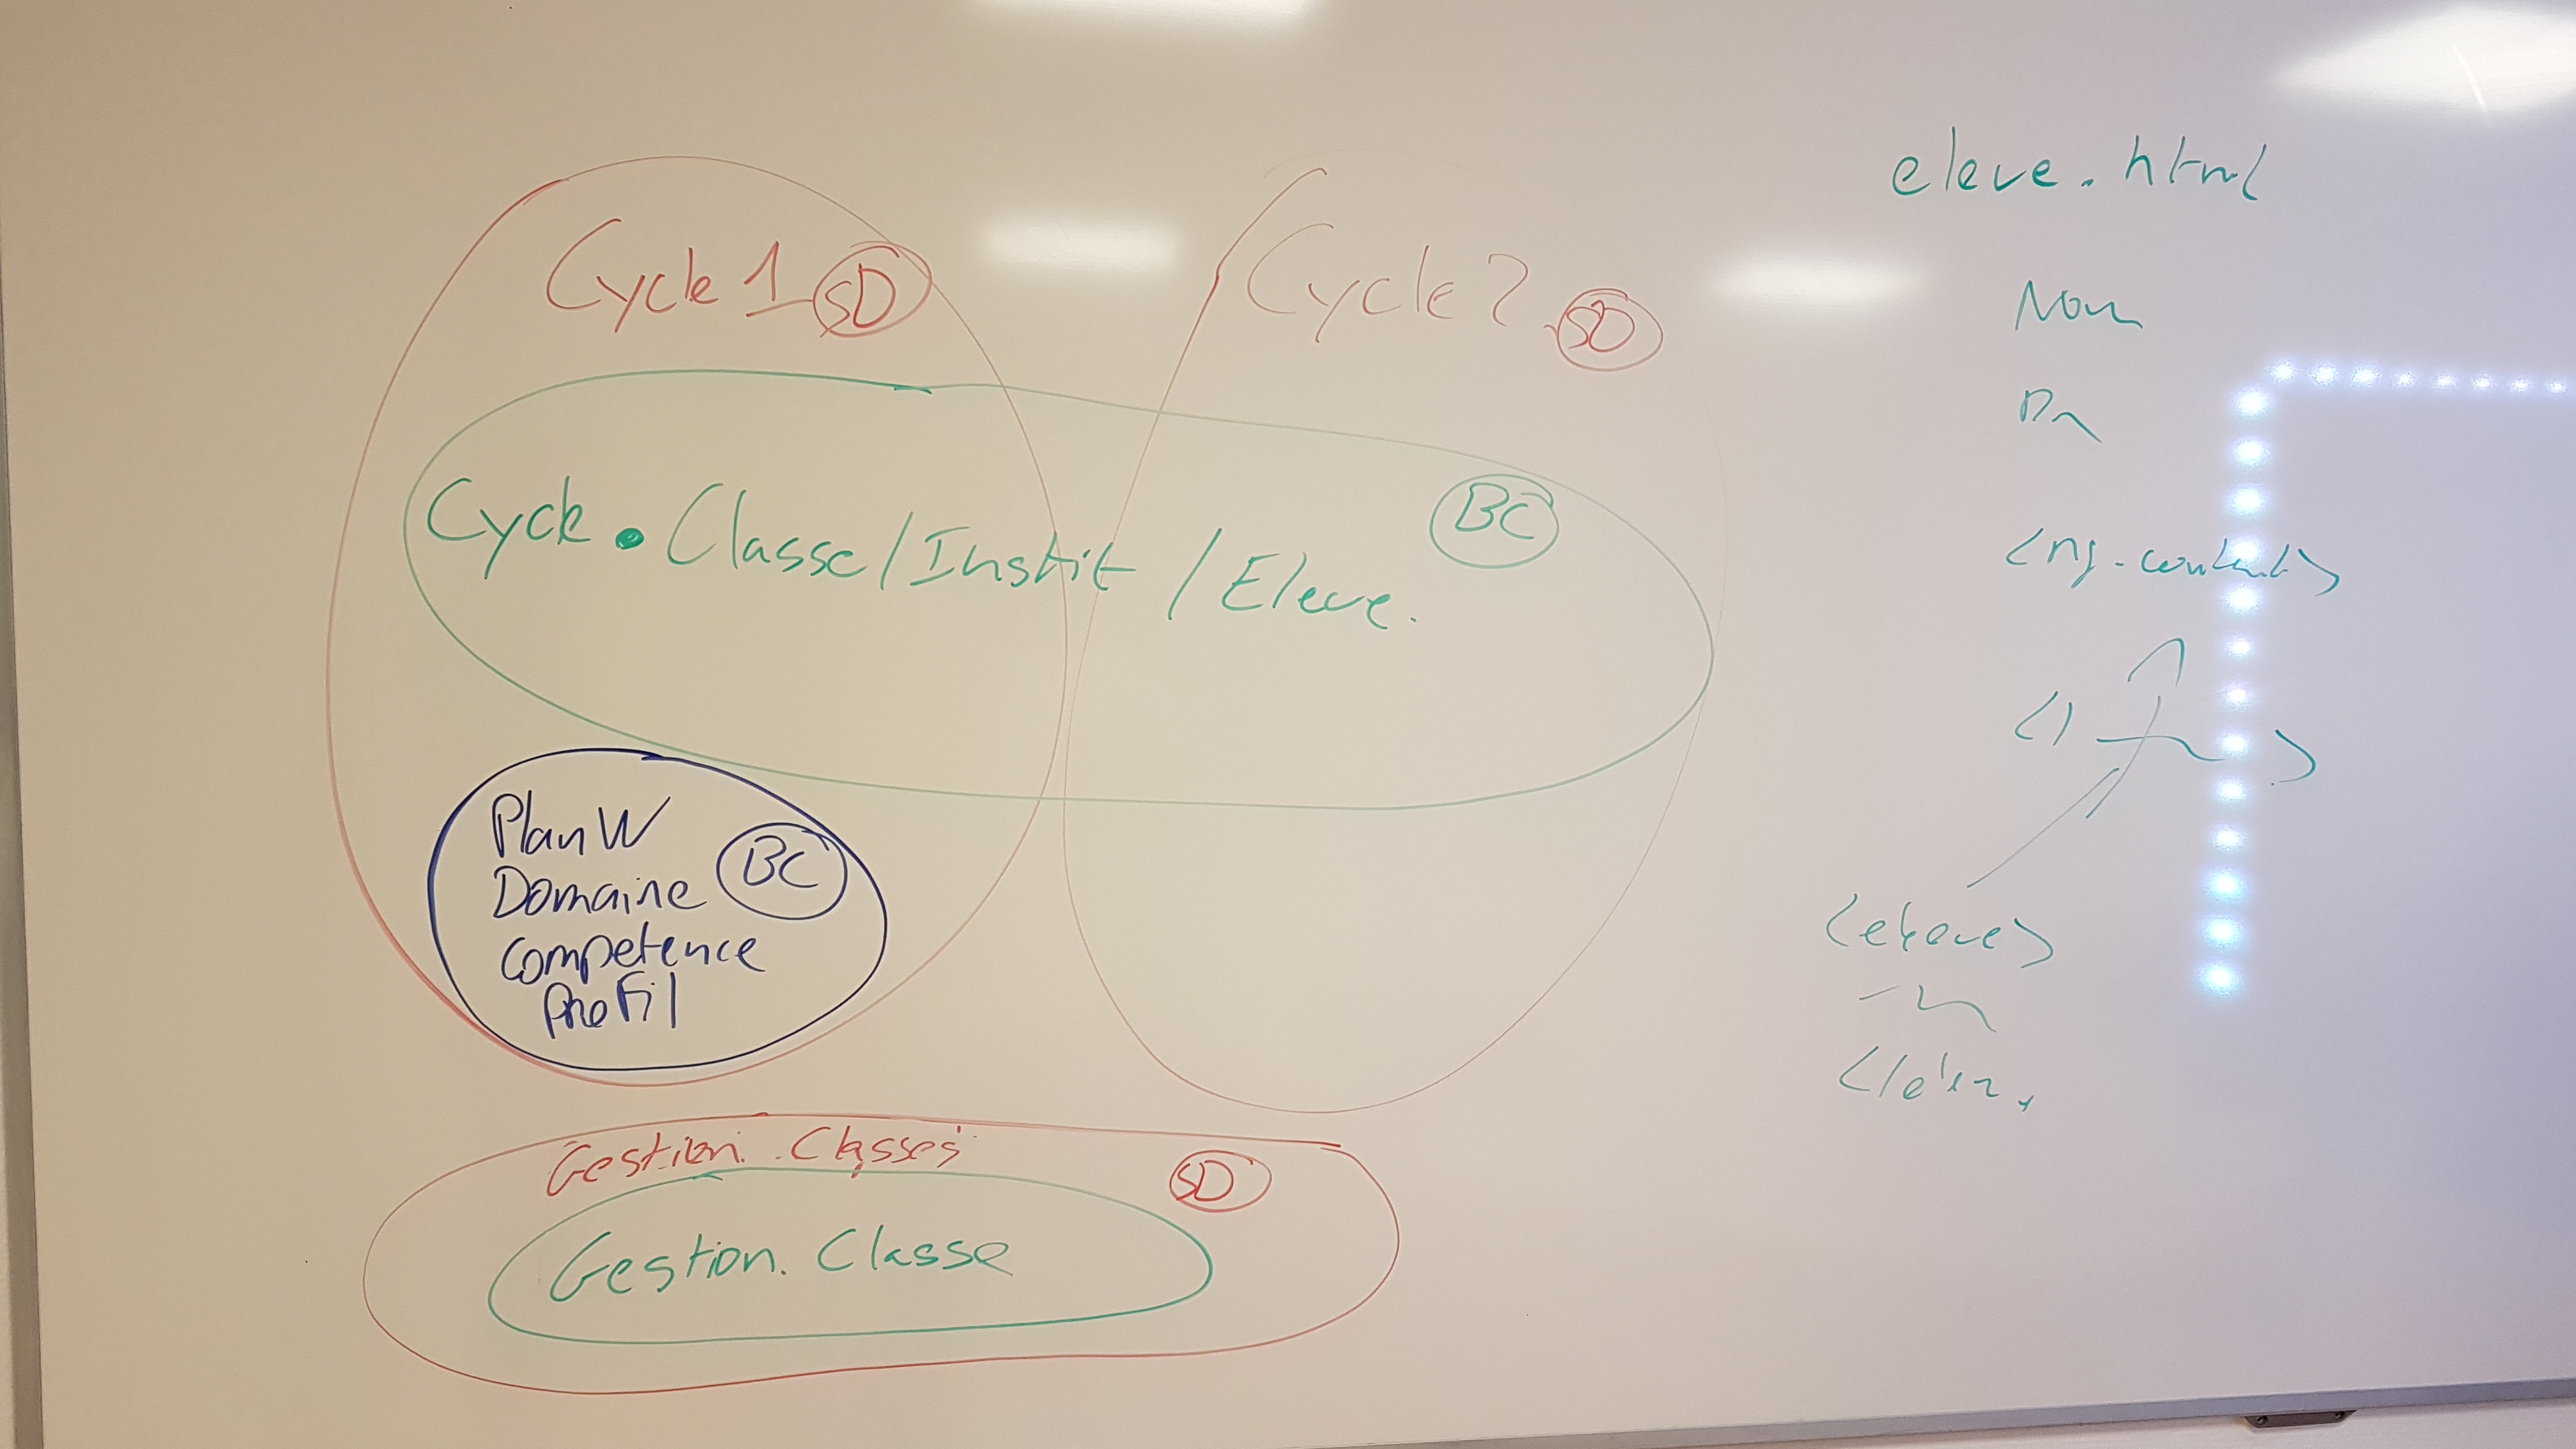 Cycle 1 SD
Cycle 2 SD
Cycle • Classe / Instit / Eleve.
BC
Plan W
Domaine
BC
Competence
Profil
Gestion. Classes
SD
Gestion. Classe
eleve.html
Nom
<ng-content>
<eleve>